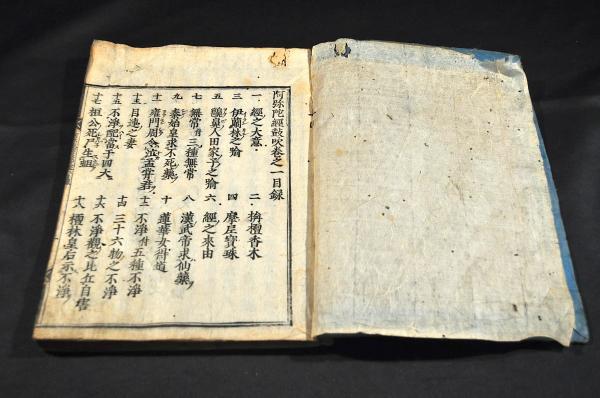 阿弥陀經鼓吹卷之一目録
一 經之大意
二 栴檀香木
三 伊蘭林之喻
四 摩尼寶珠
五 醜臭人田家子之喻
六 經之來由
七 無常 三種無常
八 漢武帝求仙藥
九 秦始皇求不死藥
十 蓮華女得道
十一 雍門周令泣孟嘗君
十二 不淨 五種不淨
十三 目連之妻
十四 三十六物之不淨
十五 不淨配當于四大
十六 不淨觀之比丘自害
十七 桓公死尸生蛆
十八 檀林皇后示不淨